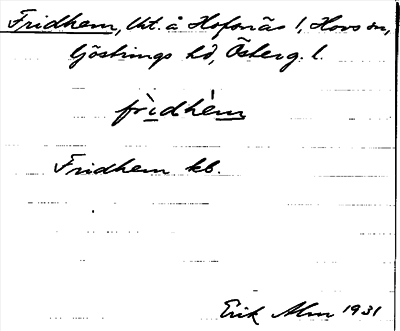 Fridhem, lht. å Hofsnäs 1, Hovs sn,
Göstrings hd, Österg. l.
frìdhèm
Fridhem kb.
Erik Alm 1931